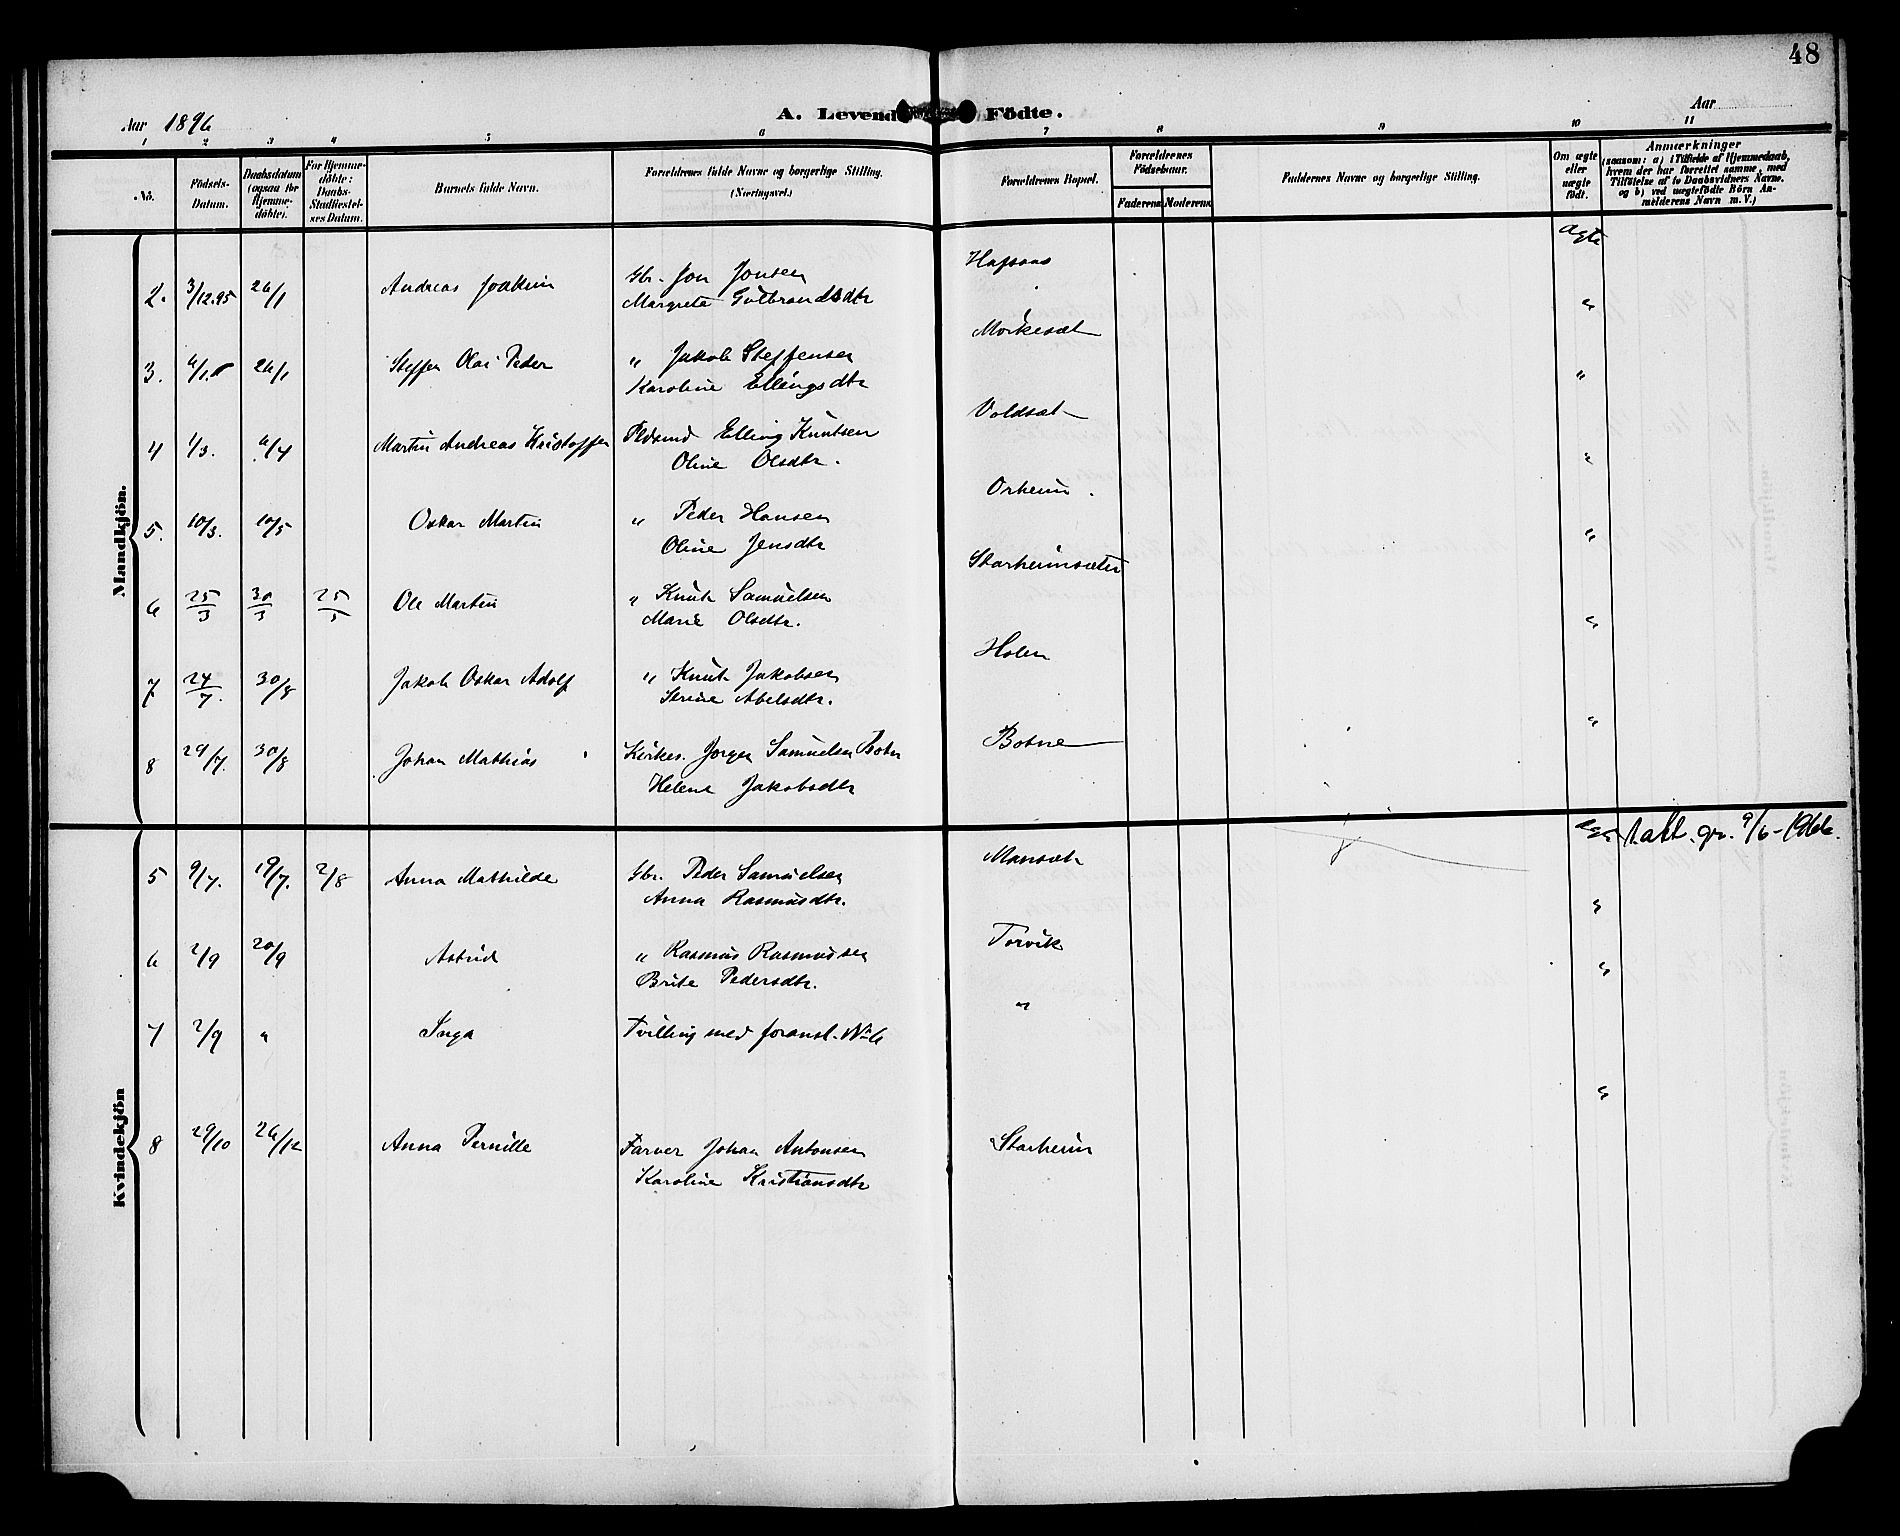 48
Aar 1896
A. Levende Födte.
Aar
1 2 3 4 5 6 7 8 9 10 11
No.
Födsels-Datum.
Daabsdatum (ogsaa for Hjemme-döbte).
For Hjemme-döbte: Daabs-Stadfæstel-ses Datum.
Barnets fulde Navn.
Forældrenes fulde Navne og borgerlige Stilling. (Næringsvei.)
Forældrenes Bopæl.
Forældrenes Födselsaar.
Faderens Moderens
Faddernes Navne og borgerlige Stilling.
Om ægte eller uægte födt.
Anmærkninger
(saasom: a) i Tilfælde af Hjemmedaab, hvem der har forrettet samme, med Tilföielse af to Daabsvidners Navne. og b) ved uægtefödte Börn An-melderens Navn m. V.)
Mandkjön.
2. 3/12.95 26/1 Andreas Joakim Gbr. Jon Jonsen ægte
Margrete Gulbrandsdtr
3. 6/1. 26/1 Steffen Olai Peder " Jakob Steffensen Morkesæt "
Karoline Ellingsdtr
4 1/3. 6/4 Martin Andreas Kristoffer Pldsmd Elling Knutsen Voldsæt "
Oline Olsdtr.
5. 10/3. 10/5 Oskar Martin " Peder Hansen Orheim. "
Oline Jensdtr
6 25/3 30/3 25/5 Ole Martin " Knut Samuelsen Starheimsæter "
Marie Olsdtr.
7 24/7. 30/8 Jakob Oskar Adolf " Knut Jakobsen Holen "
Strine Abelsdtr.
8 29/7. 30/8 Johan Mathias Kirkes. Jorgen Samuelsen Botn Botne "
Helene Jakobsdtr
Kvindekjön
5 9/7. 19/7. 2/8 Anna Mathilde Gbr. Peder Samuelsen Mansæt ægte 1.att. gr. 9/6-1966.
Anna Rasmusdtr.
6 2/9 20/9 Astrid " Rasmus Rasmussen Torvik "
Brite Pedersdtr.
7 2/9 " Inga Tvilling med foranst. No 6 " "
8 29/10 26/12 Anna Pernille Farver Johan Antonsen Starheim "
Karoline Kristiansdtr